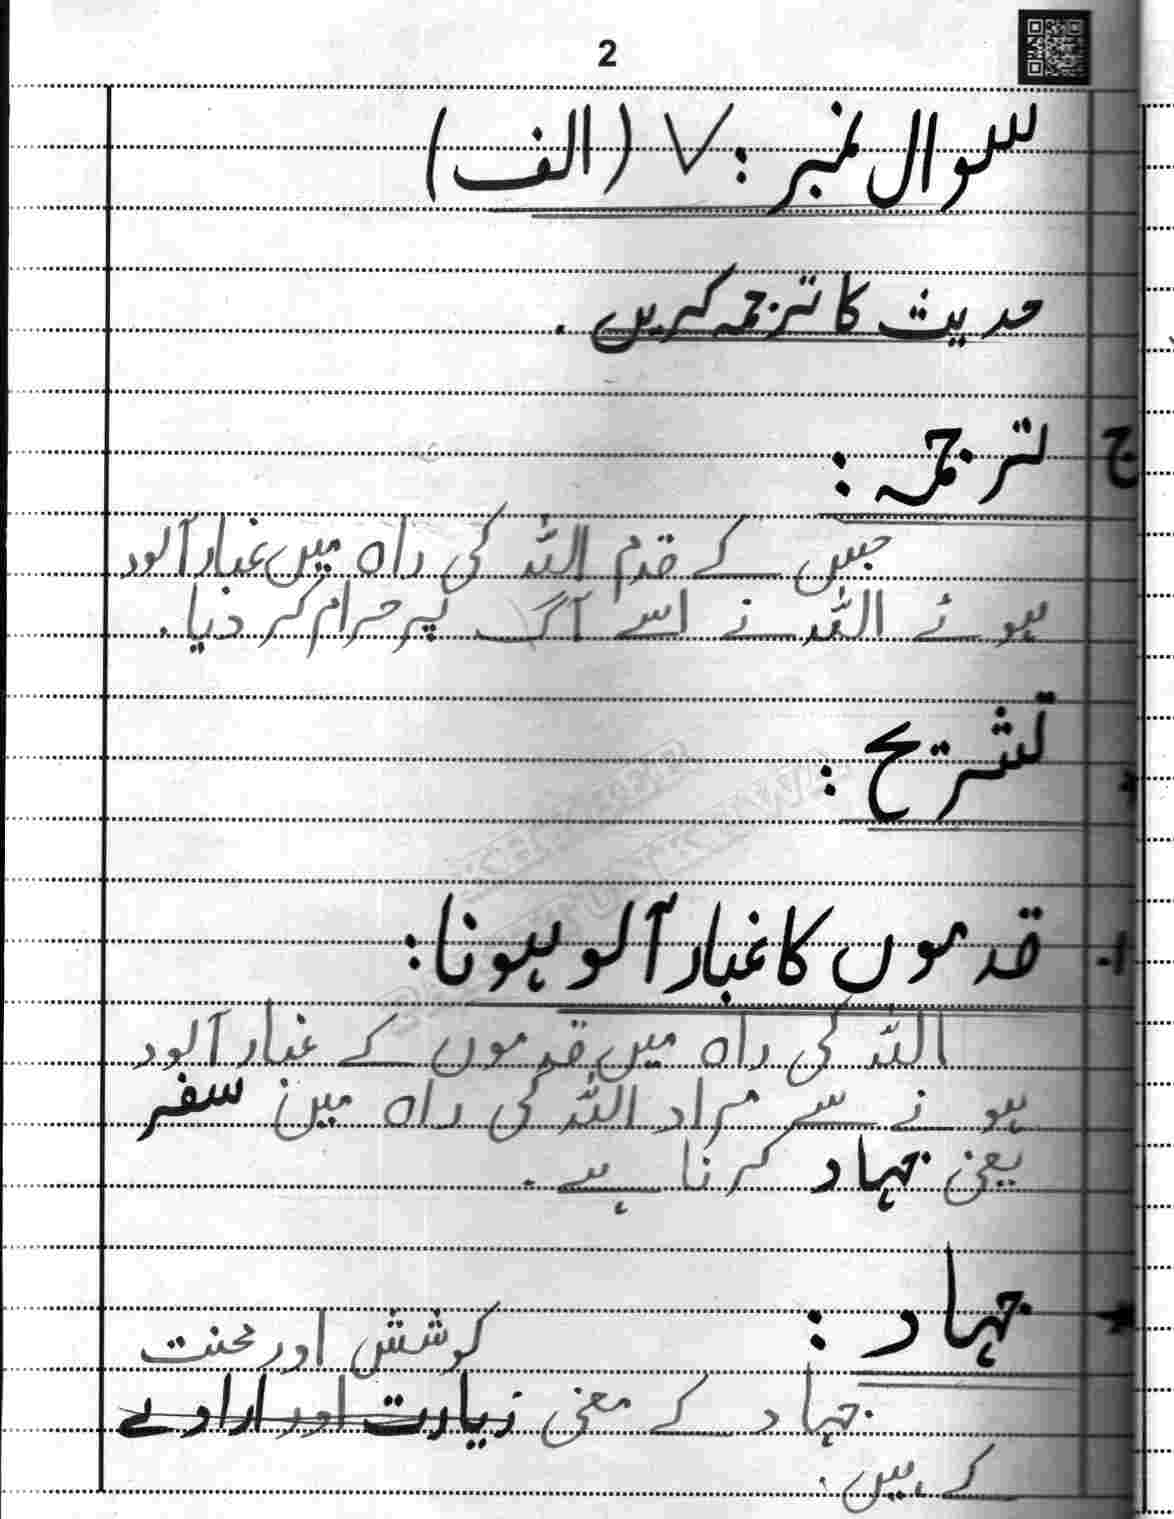 2
سوال نمبر: ۷ (الف)
حدیث کا ترجمہ کریں.
ج ترجمہ:
جس کے قدم اللہ کی راہ میں غبار آلود
ہوئے اللہ نے اسے آگ پر حرام کر دیا.
تشریح:
KHYBER
PAKHTUNKHWA
۱. قدموں کا غبار آلو ہونا:
اللہ کی راہ میں قدموں کے غبار آلود
ہونے سے مراد اللہ کی راہ میں سفر
یعنی جہاد کرنا ہے.
جہاد:
کوشش اور محنت
جہاد کے معنی زیارت اور ارادے
کے ہیں.